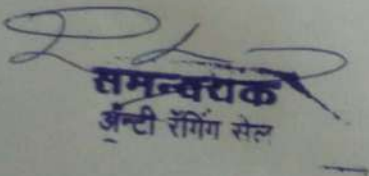 समन्वयक
ॲन्टी रॅगिंग सेल